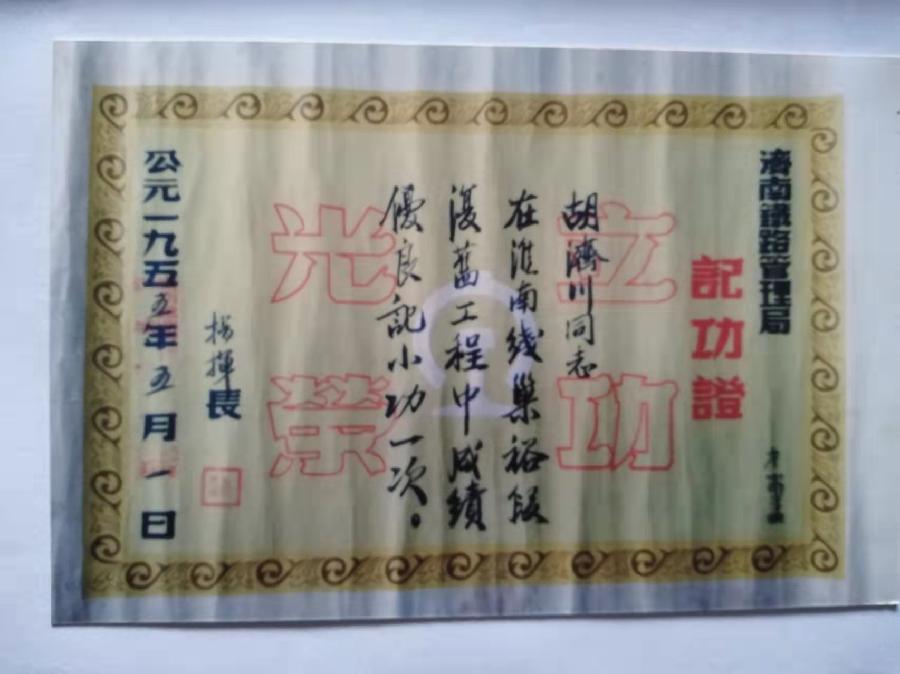 濟南鐵路管理局
記功證
立功
光榮
胡濟川同志
在淮南綫巢裕段
復舊工程中成績
優良記小功一次。
長
公元一九五五年五月一日